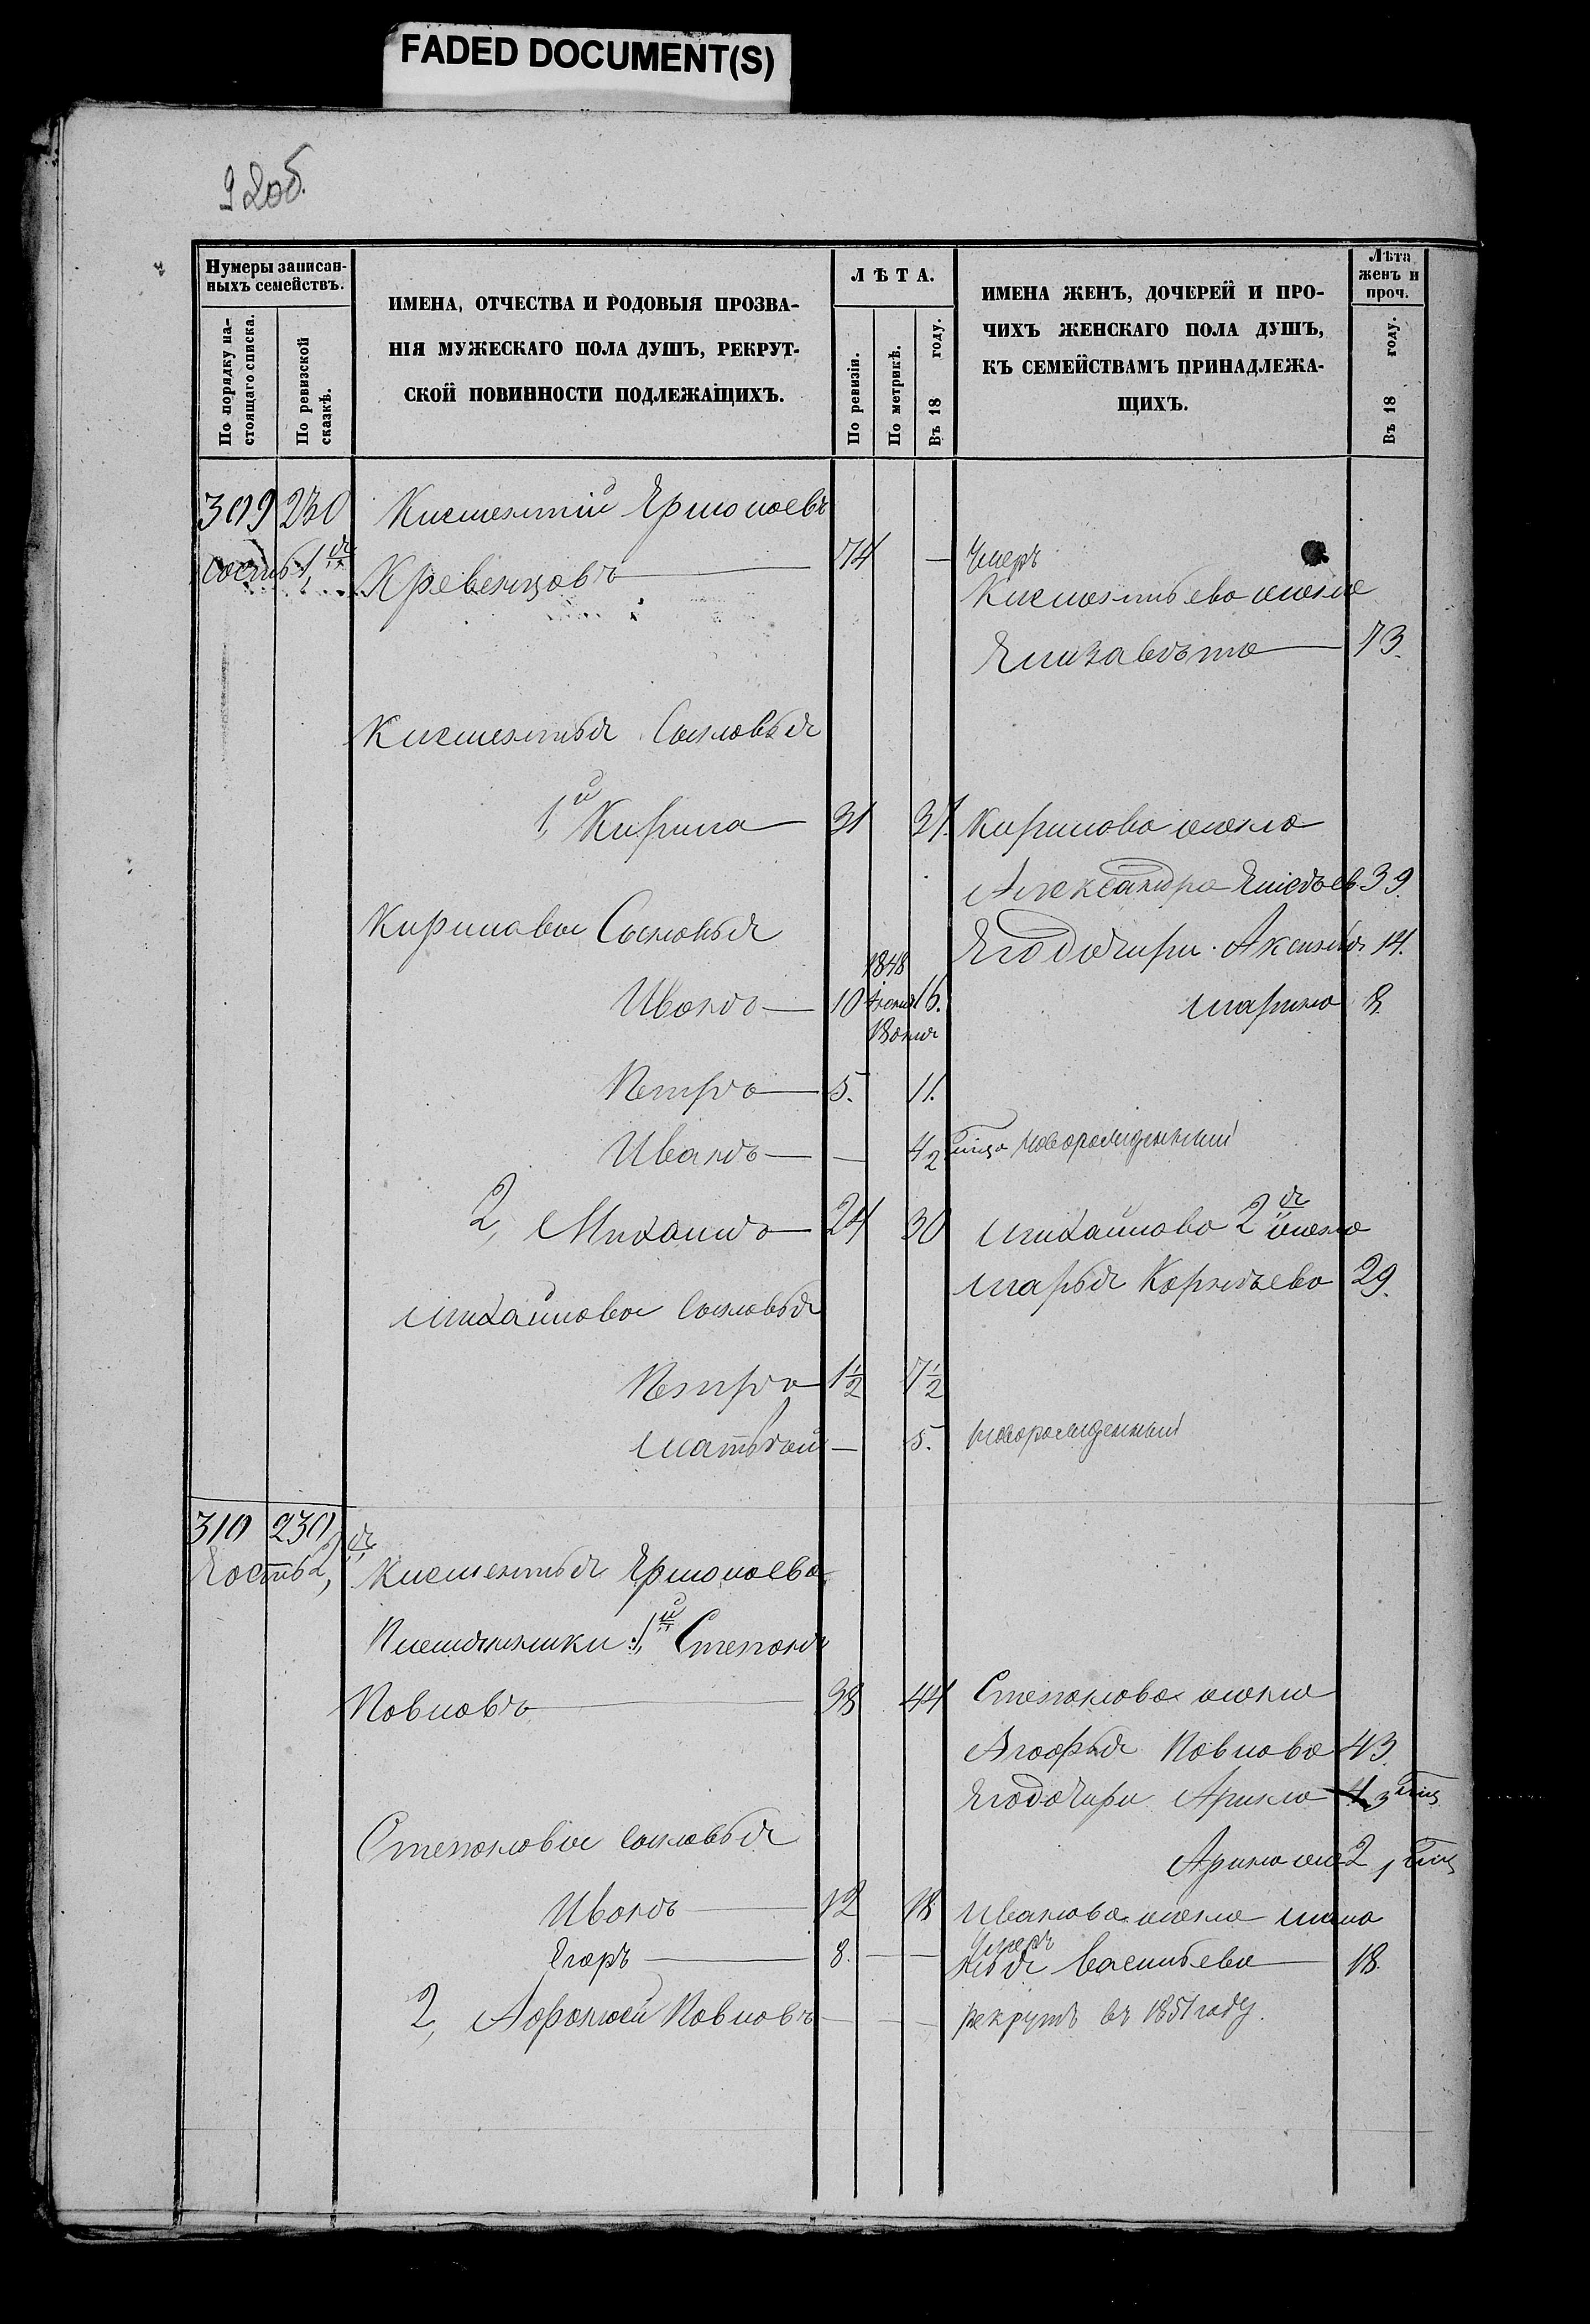 FADED DOCUMENT(S)
92об.
Нумеры записан-
ныхъ семействъ.
По порядку на-
стоящаго списка.
По ревизской
сказкѣ.
ИМЕНА, ОТЧЕСТВА И РОДОВЫЯ ПРОЗВА-
НІЯ МУЖЕСКАГО ПОЛА ДУШЪ, РЕКРУТ-
СКОЙ ПОВИННОСТИ ПОДЛЕЖАЩИХЪ.
ЛѢТА.
По ревизіи.
По метрикѣ.
Въ 18 году.
ИМЕНА ЖЕНЪ, ДОЧЕРЕЙ И ПРО-
ЧИХЪ ЖЕНСКАГО ПОЛА ДУШЪ,
КЪ СЕМЕЙСТВАМЪ ПРИНАДЛЕЖА-
ЩИХЪ.
Лѣта
женъ и
проч.
Въ 18 году.
309 230 Климентій Ермолаевъ
1я Кревенцовъ 74 — Умеръ
Климентьева жена
Елизавета 73.
Климентья Сыновья
1й Кирила 31 37. Кирилова жена
Александра 39.
Кириловы Сыновья Его дочери. Аксинья 14.
1848
Иванъ 10 16. Марина 8.
18 дня
Петръ 5. 11.
Иванъ — 4 2 Новорожденный
2, Михаилъ 24 30 Михайлова 2я жена
Марья Корнѣева 29.
Михайловы Сыновья
Петръ 1½ 7½
Матвѣй — 5. Новорожденный
310 230
2я Климентья Ермолаева
Племянники: 1й Степанъ
Павловъ 38 44 Степанова жена
Агафья Павлова 43.
Его дочери Арина 3
Степановы Сыновья
Арина 2 1
Иванъ 12 18 Иванова жена
Егоръ 8. — — Умеръ
Васильева 18.
2, Афанасій Павловъ — — — рекрутъ въ 1851 году.